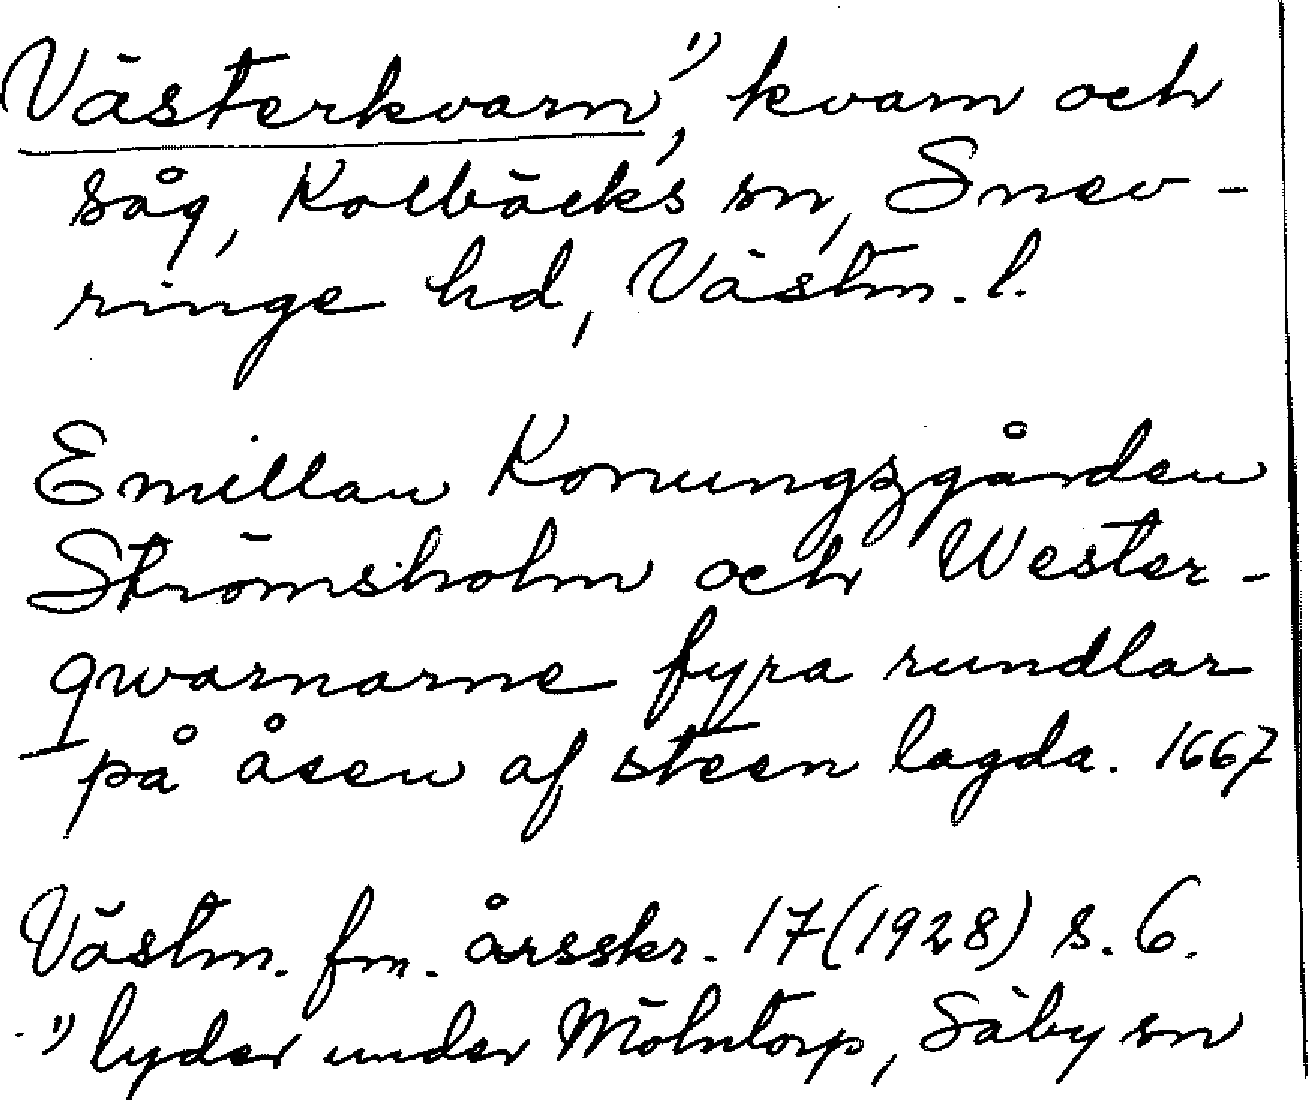 Västerkvarn,¹⁾ kvarn och
såg, Kolbäcks sn, Snev-
ringe hd, Västm. l.
Emillan Konungzgården
Strömsholm och Wester-
qwarnarne fyra rundlar
på åsen af steen lagda. 1667
Västm. fm. årsskr. 17 (1928) s. 6.
¹⁾ lyder under Mölntorp, Säby sn